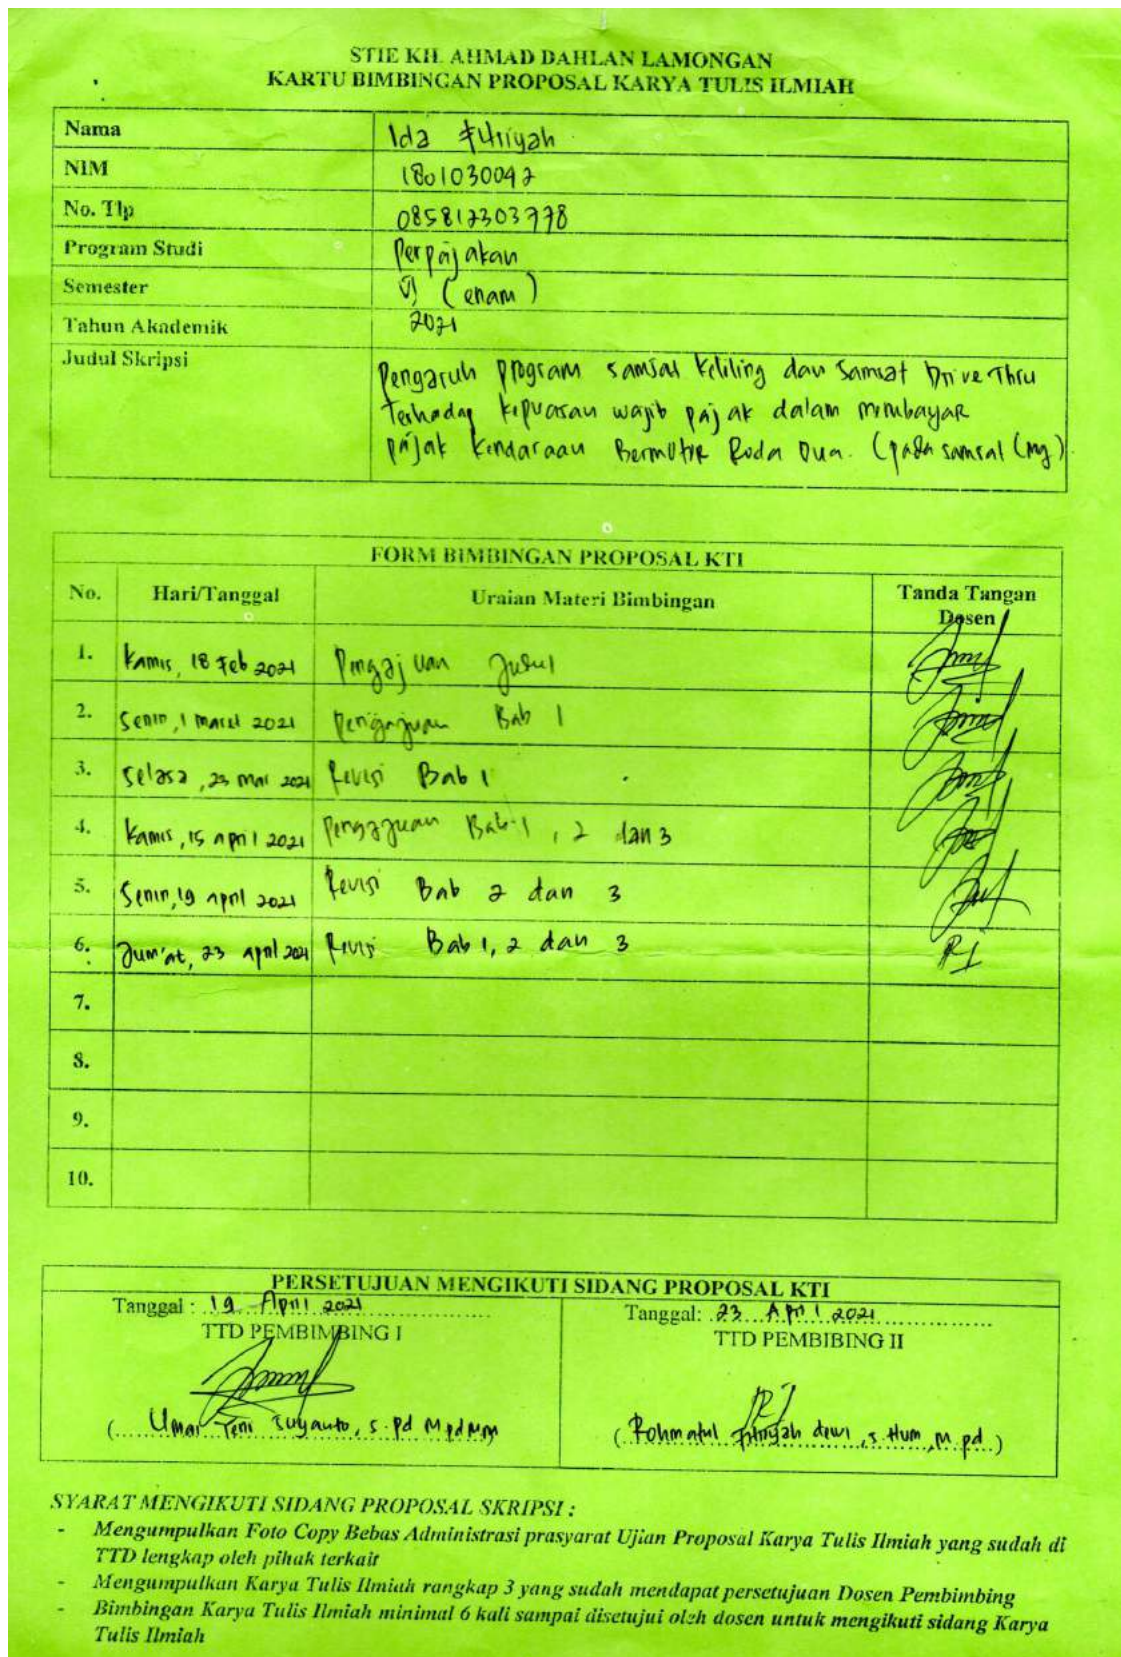 STIE KH. AHMAD DAHLAN LAMONGAN
KARTU BIMBINGAN PROPOSAL KARYA TULIS ILMIAH
Nama Ida Fitriyah
NIM 1801030092
No. Tlp 085812303778
Program Studi Perpajakan
Semester VI (enam)
Tahun Akademik 2021
Judul Skripsi Pengaruh program samsat Keliling dan Samsat Drive Thru
terhadap kepuasan wajib pajak dalam membayar
pajak Kendaraan Bermotor Roda Dua. (pada samsat Lmg)
FORM BIMBINGAN PROPOSAL KTI
No. Hari/Tanggal Uraian Materi Bimbingan Tanda Tangan
Dosen
1. Kamis, 18 Feb 2021 Pengajuan Judul
2. Senin, 1 maret 2021 Pengajuan Bab 1
3. Selasa, 23 mar 2021 Revisi Bab 1
4. Kamis, 15 april 2021 Pengajuan Bab 1, 2 dan 3
5. Senin, 19 april 2021 Revisi Bab 2 dan 3
6. Jum'at, 23 april 2021 Revisi Bab 1, 2 dan 3
7.
8.
9.
10.
PERSETUJUAN MENGIKUTI SIDANG PROPOSAL KTI
Tanggal : 19 April 2021 Tanggal: 23 April 2021
TTD PEMBIMBING I TTD PEMBIBING II
( Umar Yeni Suyanto, S.Pd M.Pd MM ( Rohmatul Fitriyah dewi, S.Hum, M.pd )
SYARAT MENGIKUTI SIDANG PROPOSAL SKRIPSI :
- Mengumpulkan Foto Copy Bebas Administrasi prasyarat Ujian Proposal Karya Tulis Ilmiah yang sudah di
TTD lengkap oleh pihak terkait
- Mengumpulkan Karya Tulis Ilmiah rangkap 3 yang sudah mendapat persetujuan Dosen Pembimbing
- Bimbingan Karya Tulis Ilmiah minimal 6 kali sampai disetujui oleh dosen untuk mengikuti sidang Karya
Tulis Ilmiah